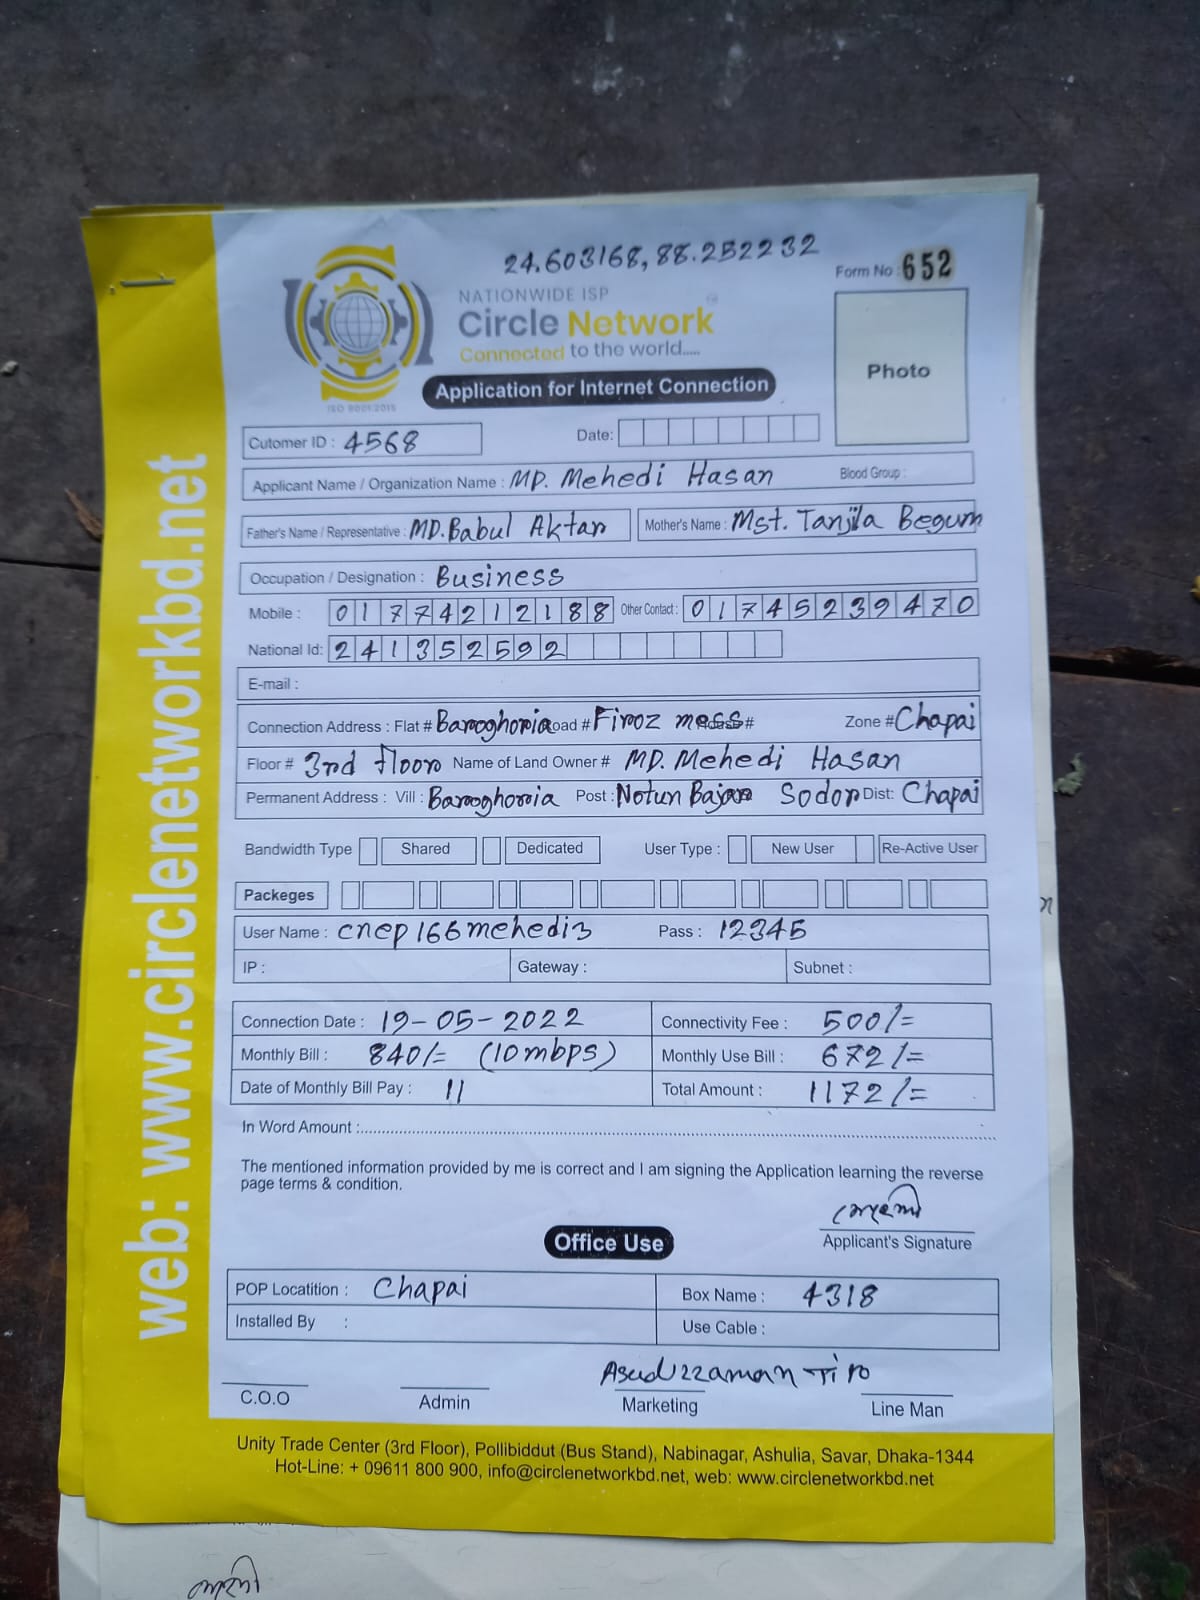 24.603168, 88.252232
Form No : 652
NATIONWIDE ISP
Circle Network
Connected to the world.....
ISO 9001:2015
Photo
Application for Internet Connection
Cutomer ID : 4568 Date:
Applicant Name / Organization Name : MD. Mehedi Hasan Blood Group :
Father's Name / Representative : MD. Babul Aktar Mother's Name : Mst. Tanjila Begum
Occupation / Designation : Business
Mobile : 01774212188 Other Contact : 01745239470
National Id: 2413525 92
E-mail :
Connection Address : Flat # Baroghoria Road # Firoz mess # Zone # Chapai
Floor # 3rd floor Name of Land Owner # MD. Mehedi Hasan
Permanent Address : Vill : Baroghoria Post : Notun Bajar Sodor Dist: Chapai
Bandwidth Type Shared Dedicated User Type : New User Re-Active User
Packeges
User Name : cnep166mehedi3 Pass : 12345
IP : Gateway : Subnet :
Connection Date : 19-05-2022 Connectivity Fee : 500/=
Monthly Bill : 840/= (10mbps) Monthly Use Bill : 672/=
Date of Monthly Bill Pay : 11 Total Amount : 1172/=
In Word Amount :
The mentioned information provided by me is correct and I am signing the Application learning the reverse
page terms & condition.
মেহেদী
Applicant's Signature
Office Use
POP Locatition : Chapai Box Name : 4318
Installed By : Use Cable :
Asaduzzaman Tipo
C.O.O Admin Marketing Line Man
Unity Trade Center (3rd Floor), Pollibiddut (Bus Stand), Nabinagar, Ashulia, Savar, Dhaka-1344
Hot-Line: + 09611 800 900, info@circlenetworkbd.net, web: www.circlenetworkbd.net
web: www.circlenetworkbd.net